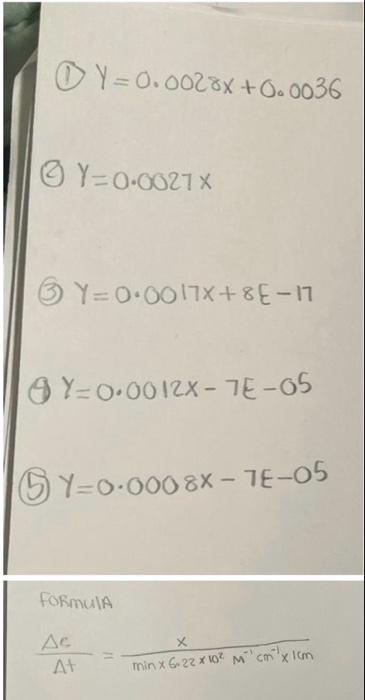 ① Y=0.0028x+0.0036
② Y=0.0027x
③ Y=0.0017x+8E-17
④ Y=0.0012x-7E-05
⑤ Y=0.0008x-7E-05
FORMULA
Δc/Δt = x/(min x 6.22 x 10² M⁻¹ cm⁻¹ x 1cm)